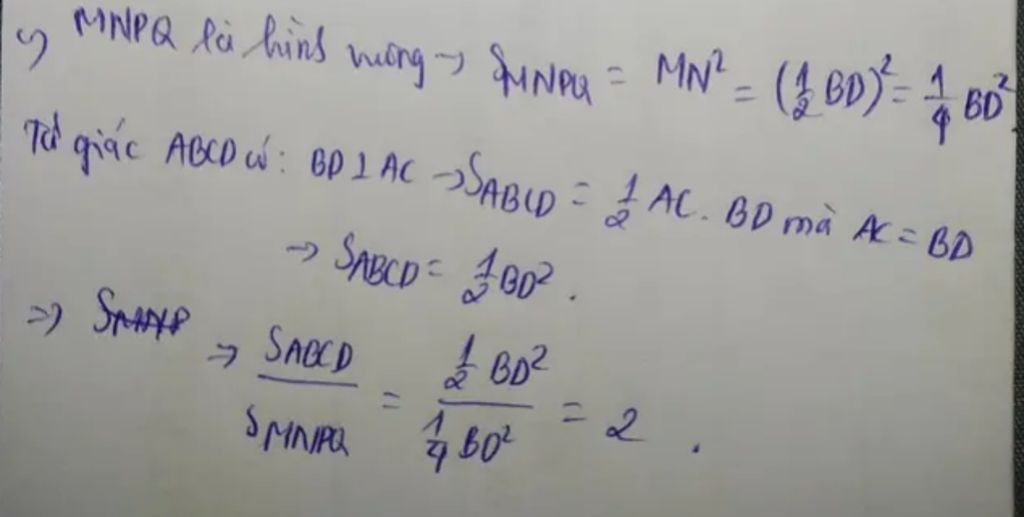 c) MNPQ là hình vuông → S_MNPQ = MN² = (1/2 BD)² = 1/4 BD²
Tứ giác ABCD có: BD ⊥ AC → S_ABCD = 1/2 AC. BD mà AC = BD
→ S_ABCD = 1/2 BD².
⇒ S_MNP
⇒ S_ABCD / S_MNPQ = (1/2 BD²) / (1/4 BD²) = 2.